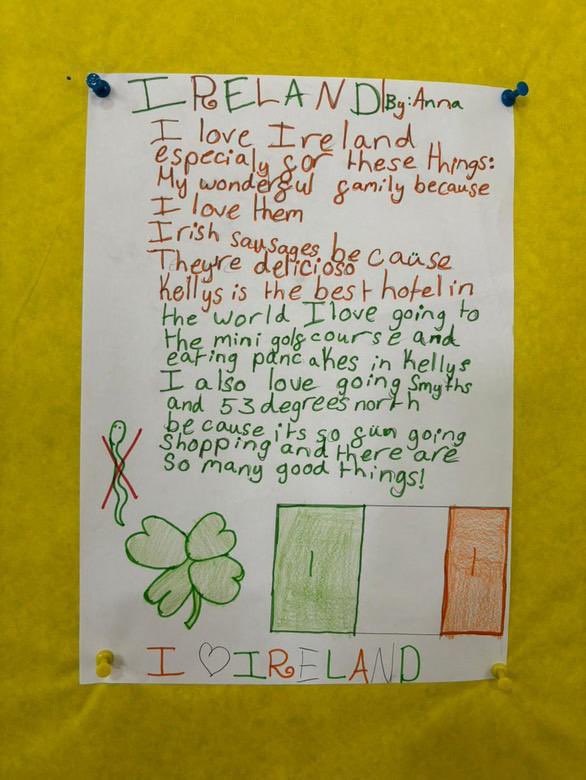 IRELAND By: Anna
I love Ireland
especialy for these things:
My wonderful family because
I love them
Irish sausages because
They're delicioso
Kellys is the best hotel in
the world I love going to
the mini golf course and
eating pancakes in Kellys
I also love going Smyths
and 53 degrees north
because its so fun going
shopping and there are
so many good things!
I ♡ IRELAND